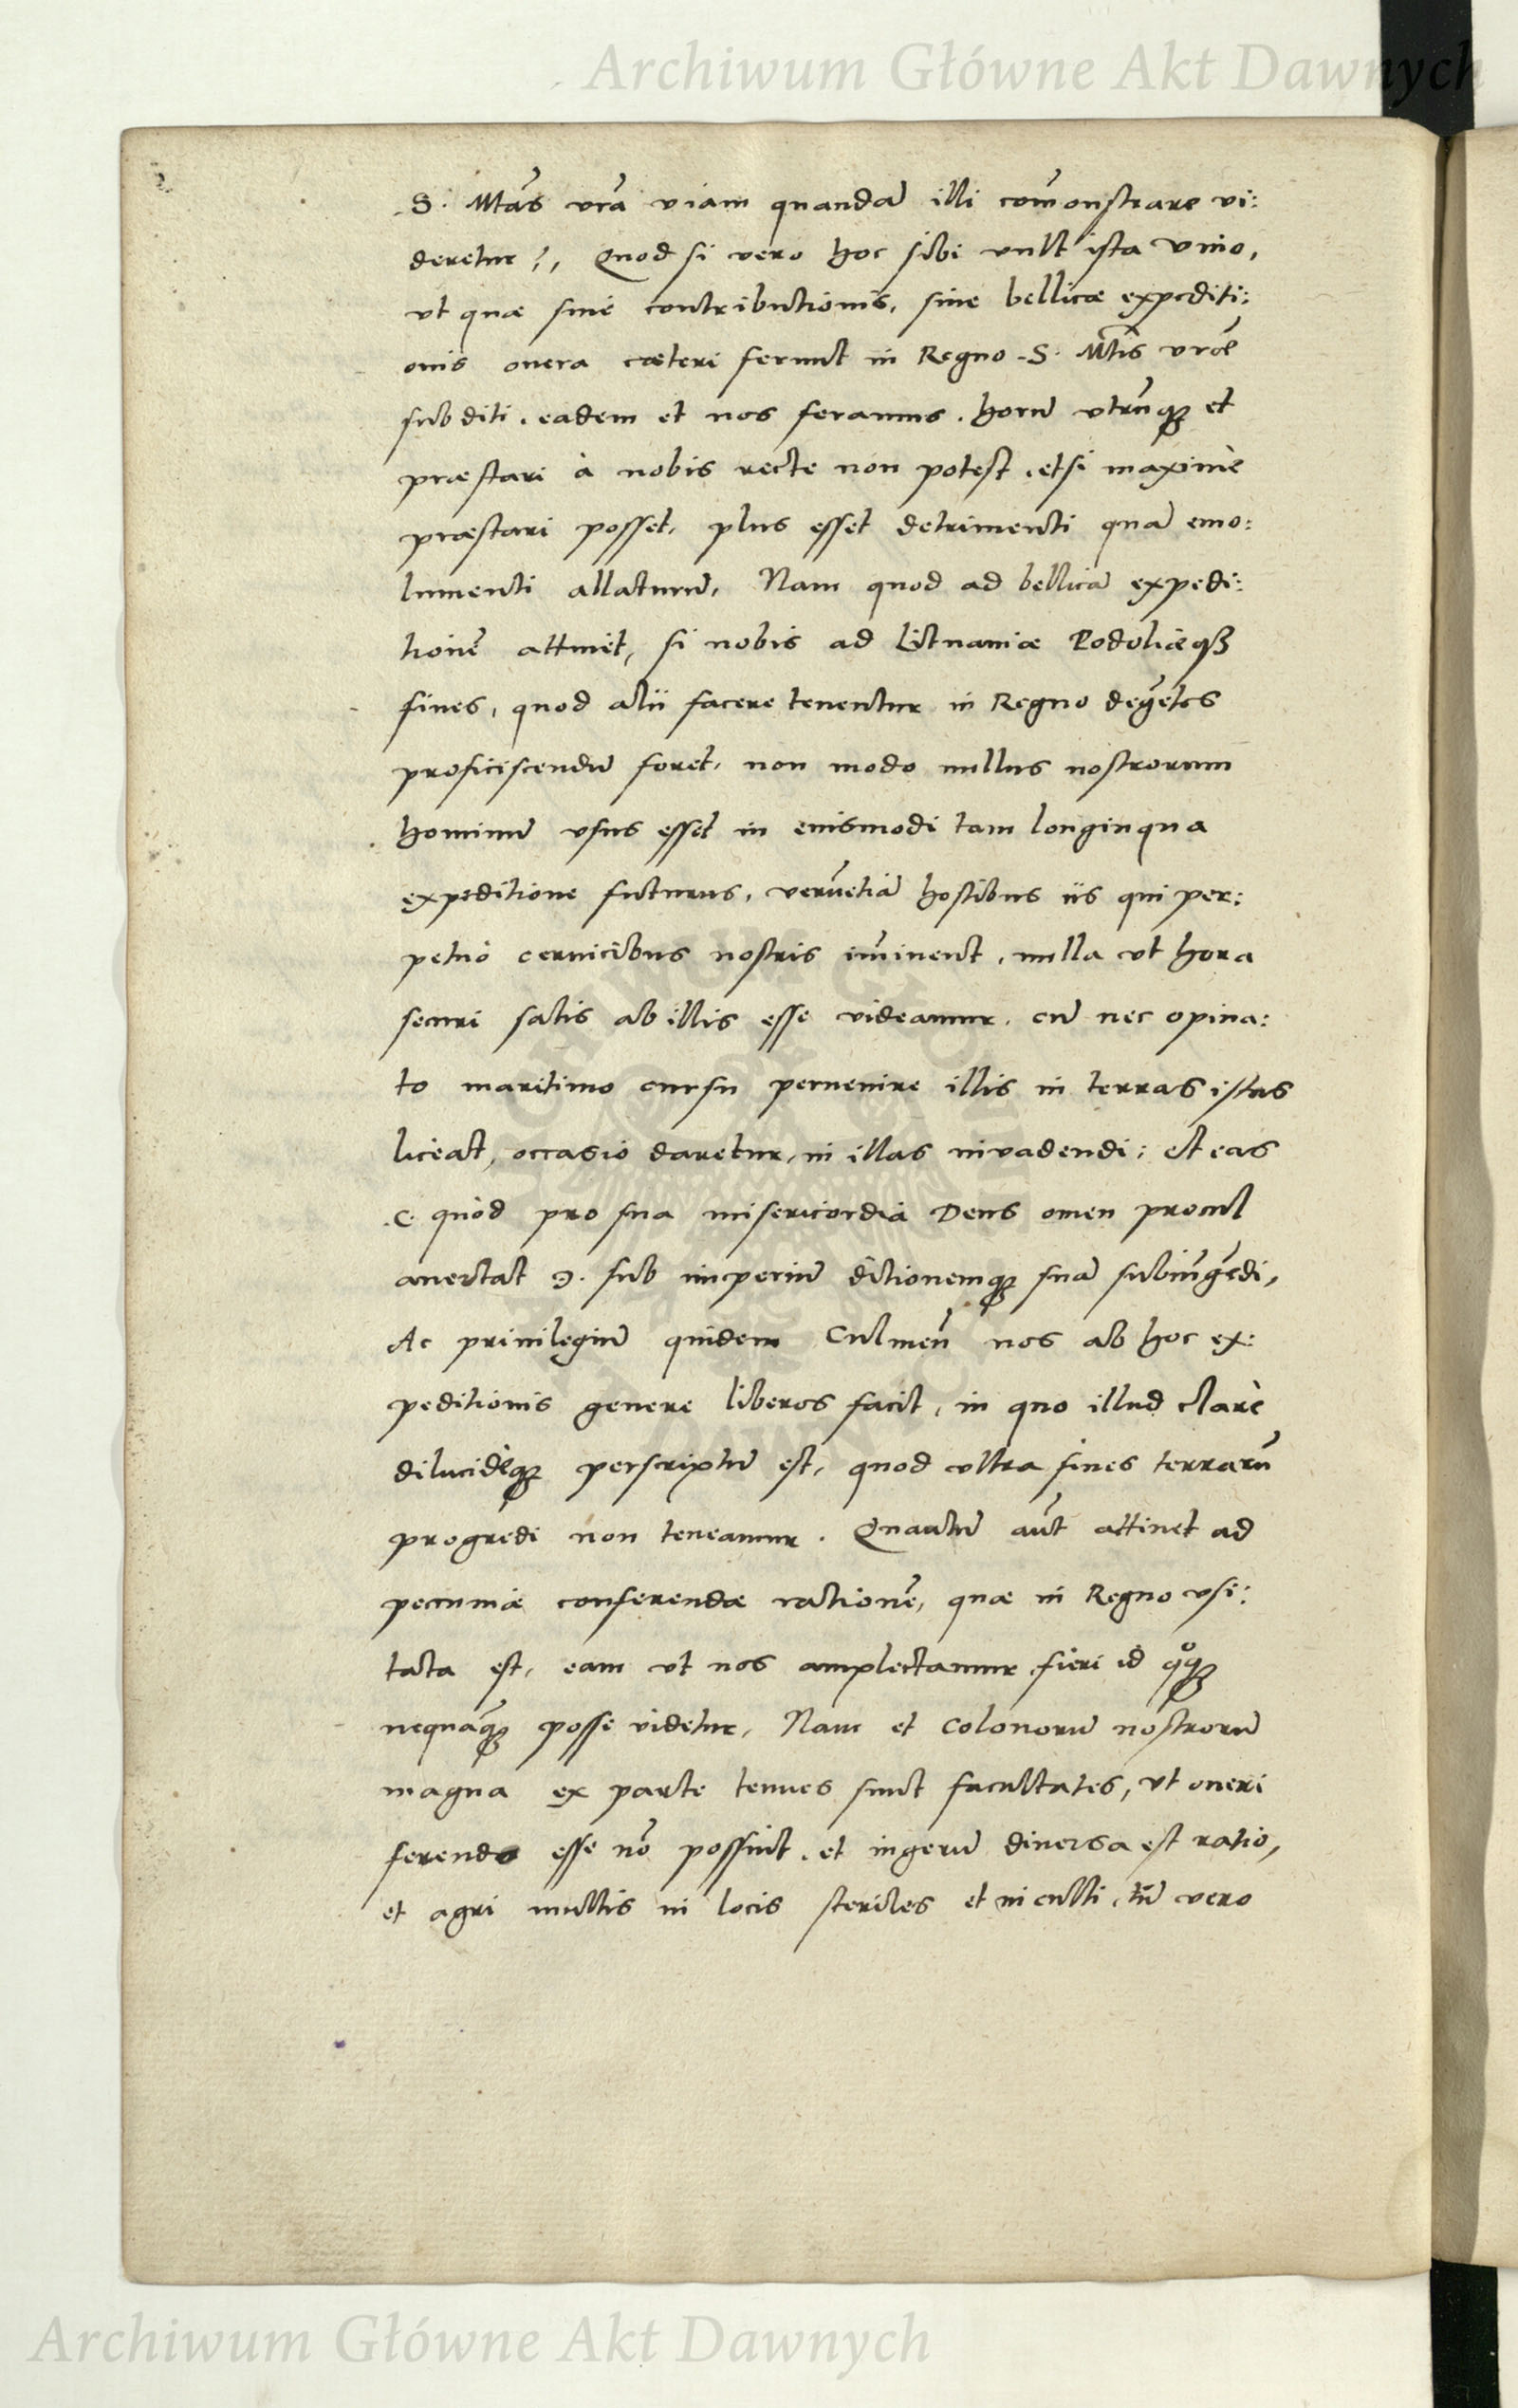 Archiwum Główne Akt Dawnych
S. Mtas vra viam quandā illi com̄onstrare vi:
deretur?, Quod si vero hoc sibi vult ista Vnio,
vt quæ siue contributionis, siue bellicæ expediti:
onis onera cæteri ferunt in Regno S. Mtis vræ
subditi, eadem et nos feramus. horū vtrūq3 et
præstari à nobis recte non potest, etsi maximè
præstari posset, plus esset detrimenti quā emo:
lumenti allaturū, Nam quod ad bellicā expedi:
tionē attinet, si nobis ad Lituaniæ Podoliæq3
fines, quod alii facere tenentur in Regno degētes
proficiscendū foret, non modo nullus nostrorum
hominū vsus esset in eiusmodi tam longinqua
expeditione futurus, verūetiā hostibus iis qui per:
petuò ceruicibus nostris im̄inent, nulla vt hora
securi satis ab illis esse videamur, cū nec opina:
to maritimo cursu peruenire illis in terras istas
liceat, occasio daretur, in illas inuadendi: et eas
( quod pro sua misericordia Deus omen procul
auertat ). sub imperiū ditionemq3 suā subiūgēdi,
Ac priuilegiū quidem Culmeñ nos ab hoc ex:
peditionis genere liberos facit, in quo illud clarè
dilucidèq3 perscriptū est, quod vltra fines terrarū
progredi non teneamur. Quantū aūt attinet ad
pecuniæ conferendæ rationē, quæ in Regno vsi:
tata est, eam vt nos amplectamur, fieri id qºq3
nequāq3 posse videtur, Nam et colonorū nostrorū
magna ex parte tenues sunt facultates, vt oneri
ferendo esse nō possint, et iugerū diuersa est ratio,
et agri multis in locis steriles et inculti, tū vero
Archiwum Główne Akt Dawnych